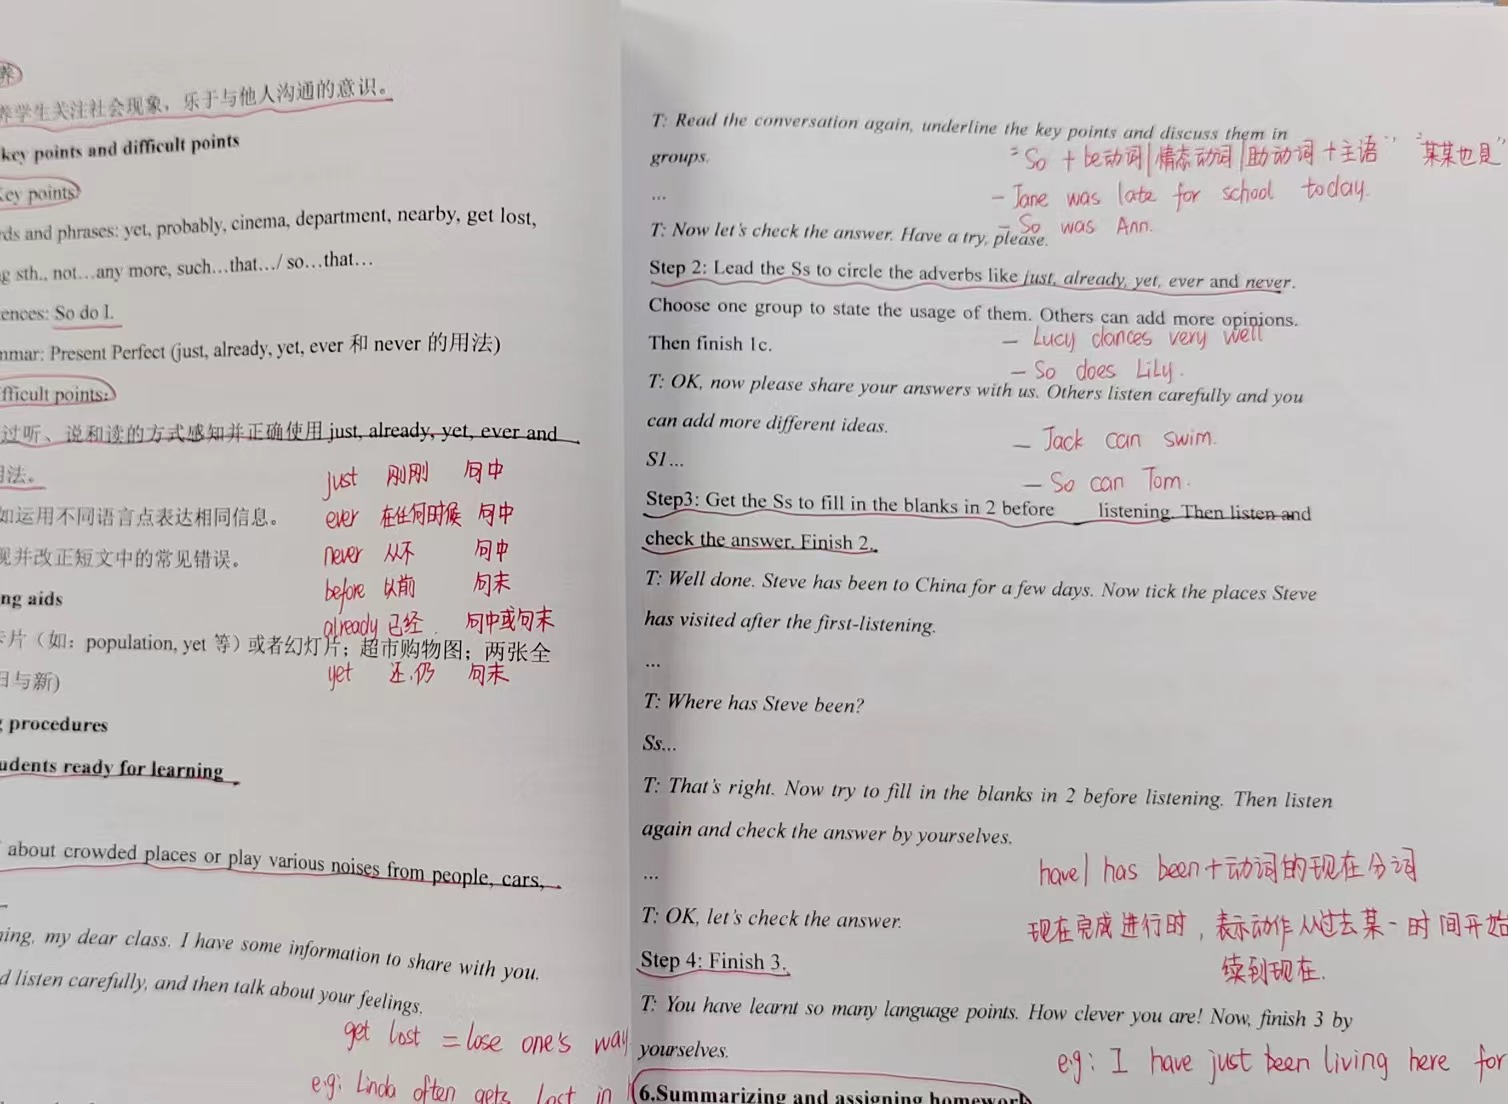 养
养学生关注社会现象，乐于与他人沟通的意识。
key points and difficult points
Key points
and phrases: yet, probably, cinema, department, nearby, get lost,
sth., not…any more, such…that…/ so…that…
So do I.
Present Perfect (just, already, yet, ever 和 never 的用法)
points:
过听、说和读的方式感知并正确使用 just, already, yet, ever and
用法。
just 刚刚 句中
如运用不同语言点表达相同信息。
ever 在任何时候 句中
现并改正短文中的常见错误。
never 从不 句中
before 以前 句末
aids
already 已经 句中或句末
卡片（如：population, yet 等）或者幻灯片；超市购物图；两张全
旧与新)
yet 还.仍 句末
procedures
ready for learning
about crowded places or play various noises from people, cars,
my dear class. I have some information to share with you.
listen carefully, and then talk about your feelings.
get lost = lose one's way
e.g: Linda often gets lost in
T: Read the conversation again, underline the key points and discuss them in
groups.
"So + be动词|情态动词|助动词+主语" "某某也是"
…
- Jane was late for school today.
- So was Ann.
T: Now let's check the answer. Have a try, please.
Step 2: Lead the Ss to circle the adverbs like just, already, yet, ever and never.
Choose one group to state the usage of them. Others can add more opinions.
- Lucy dances very well
Then finish 1c.
- So does Lily.
T: OK, now please share your answers with us. Others listen carefully and you
can add more different ideas.
- Jack can swim.
S1…
- So can Tom.
Step3: Get the Ss to fill in the blanks in 2 before listening. Then listen and
check the answer. Finish 2.
T: Well done. Steve has been to China for a few days. Now tick the places Steve
has visited after the first-listening.
…
T: Where has Steve been?
Ss...
T: That's right. Now try to fill in the blanks in 2 before listening. Then listen
again and check the answer by yourselves.
…
have| has been+动词的现在分词
T: OK, let's check the answer.
现在完成进行时，表示动作从过去某一时间开始
Step 4: Finish 3.
续到现在.
T: You have learnt so many language points. How clever you are! Now, finish 3 by
yourselves.
e.g: I have just been living here for
6.Summarizing and assigning homework